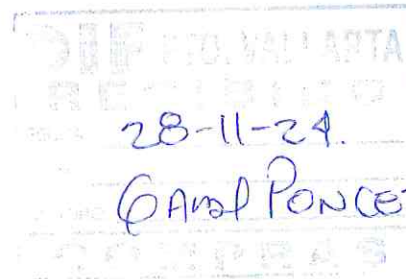 DIF PTO. VALLARTA
RECIBIDO
28-11-24.
PONCE
COMPRAS